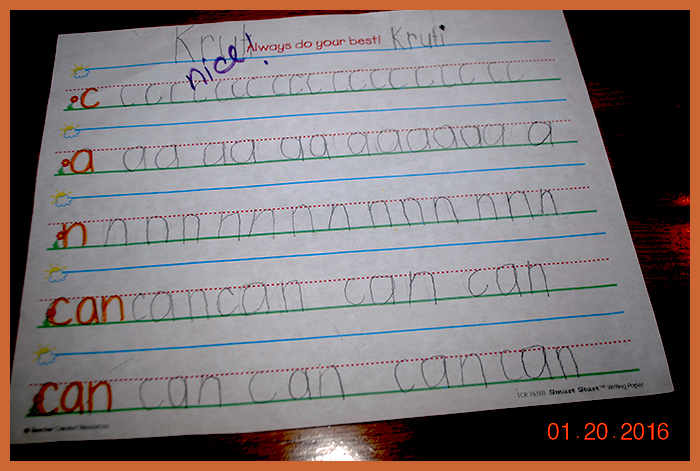 Kruti Always do your best! Kruti
nice!
c c c c c c c c c c c c c c c c c c c
a a a a a a a a a a a a a a
n n n n n n n n n n n n n n
can can can can can
can can can can can
© Teacher Created Resources TCR 76501 Smart Start™ Writing Paper
01.20.2016